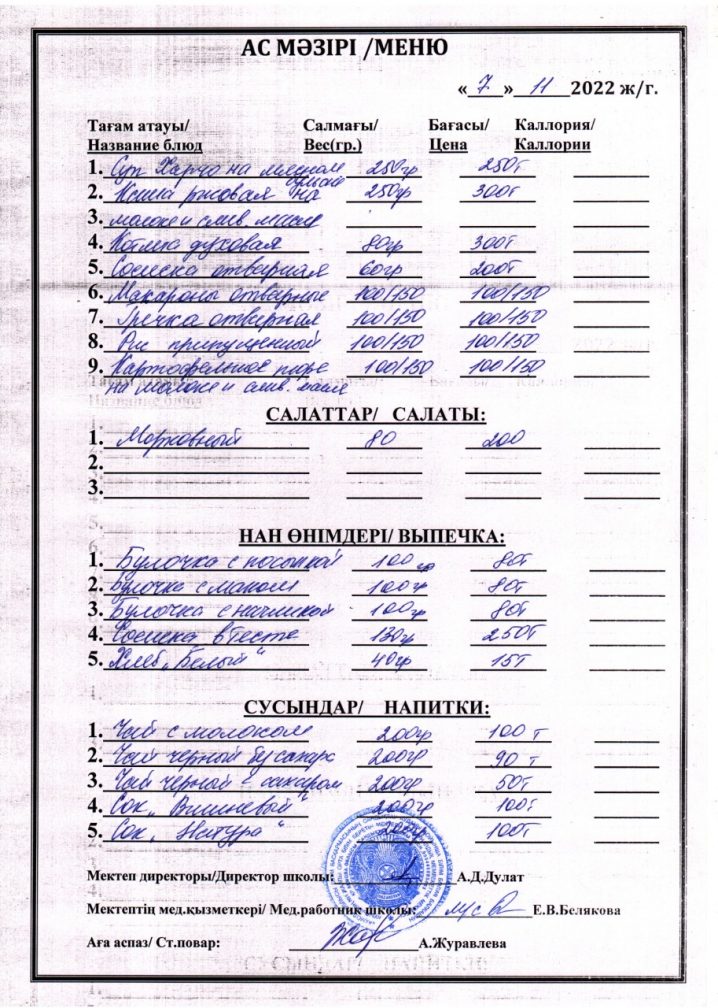 АС МӘЗІРІ /МЕНЮ
« 7 » 11 2022 ж/г.
Тағам атауы/ Салмағы/ Бағасы/ Каллория/
Название блюд Вес(гр.) Цена Каллории
1. Суп Харчо на мясном 250гр 250т
бульоне
2. Каша рисовая на 250гр 300т
3. молоке и слив. масле
4. Котлета духовая 80гр 300т
5. Сосиска отварная 60гр 200т
6. Макароны отварные 100/150 100/150
7. Гречка отварная 100/150 100/150
8. Рис припущенный 100/150 100/150
9. Картофельное пюре 100/150 100/150
на молоке и слив. масле
САЛАТТАР/ САЛАТЫ:
1. Морковный 80 200
2.
3.
НАН ӨНІМДЕРІ/ ВЫПЕЧКА:
1. Булочка с посыпкой 100 гр 80т
2. Булочка с маком 100гр 80т
3. Булочка с начинкой 100гр 80т
4. Сосиска в тесте 130гр 250т
5. Хлеб „Белый“ 40гр 15т
СУСЫНДАР/ НАПИТКИ:
1. Чай с молоком 200гр 100 т
2. Чай черный 200гр 90 т
3. Чай черный с сахаром 200гр 50т
4. Сок „Вишневый“ 200гр 100т
5. Сок „Натура“ 200гр 100т
Мектеп директоры/Директор школы: А.Д.Дулат
Мектептің мед.қызметкері/ Мед.работник школы: Е.В.Белякова
Аға аспаз/ Ст.повар: А.Журавлева